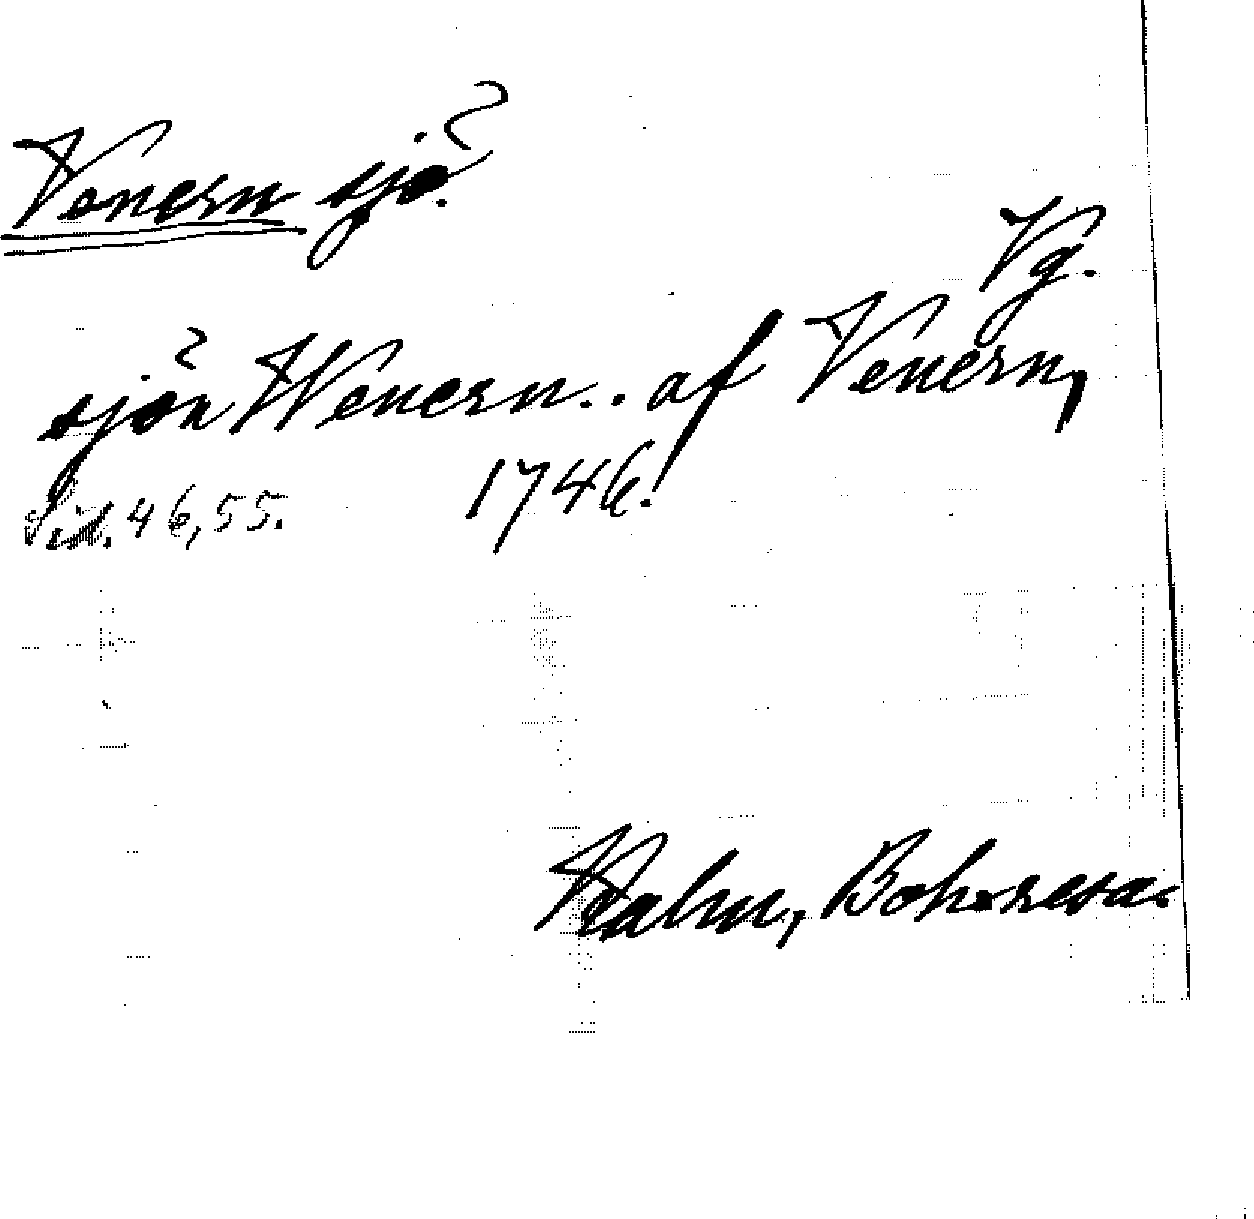 Venern sjö.
Vg.
sjön Wenern.. af Venern,
1746.
Sid. 46, 55.
Kalm, Boh. resa.